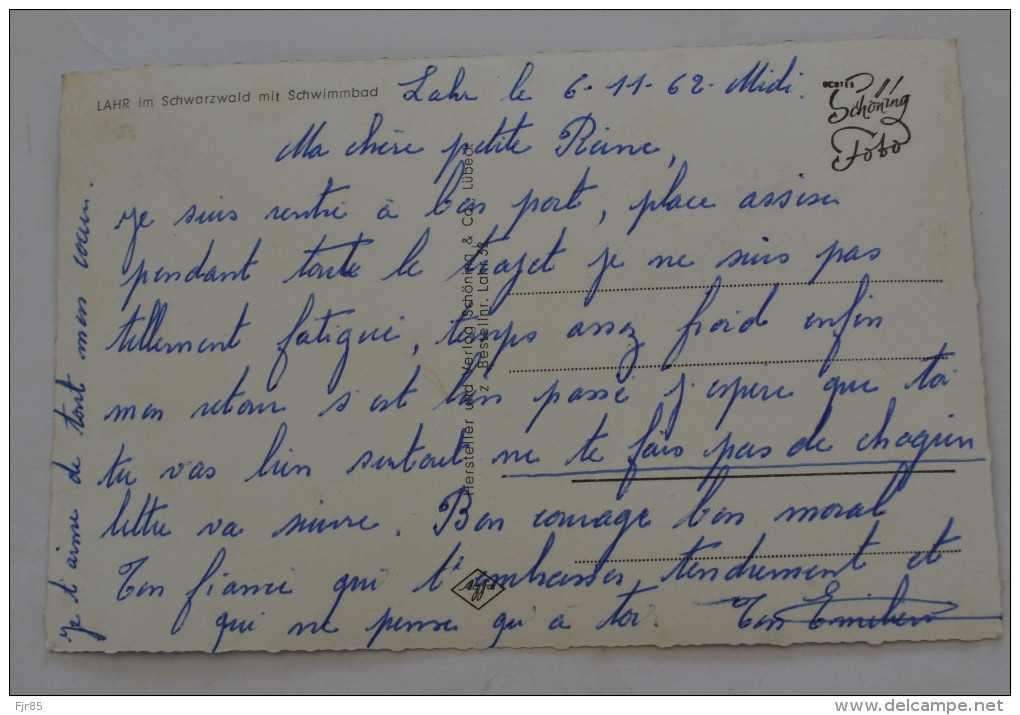 LAHR im Schwarzwald mit Schwimmbad
Lahr le 6-11-62. Midi.
ECHTES
Schöning
Foto
Ma chère petite Reine,
je suis rentré à bon port, place assise
pendant toute le trajet je ne suis pas
tellement fatigué, temps assez froid enfin
mon retour s'est bien passé j'espère que toi
tu vas bien surtout ne te fais pas de chagrin
lettre va suivre. Bon courage bon moral
Ton fiancé qui t'embrasse, tendrement et
qui ne pense qu'à toi. Ton
je t'aime de tout mon cœur.
Hersteller und Verlag Schöning & Co., Lübeck
Bestellnr. Lahr 32
Agfa
Fjr85
www.delcampe.net